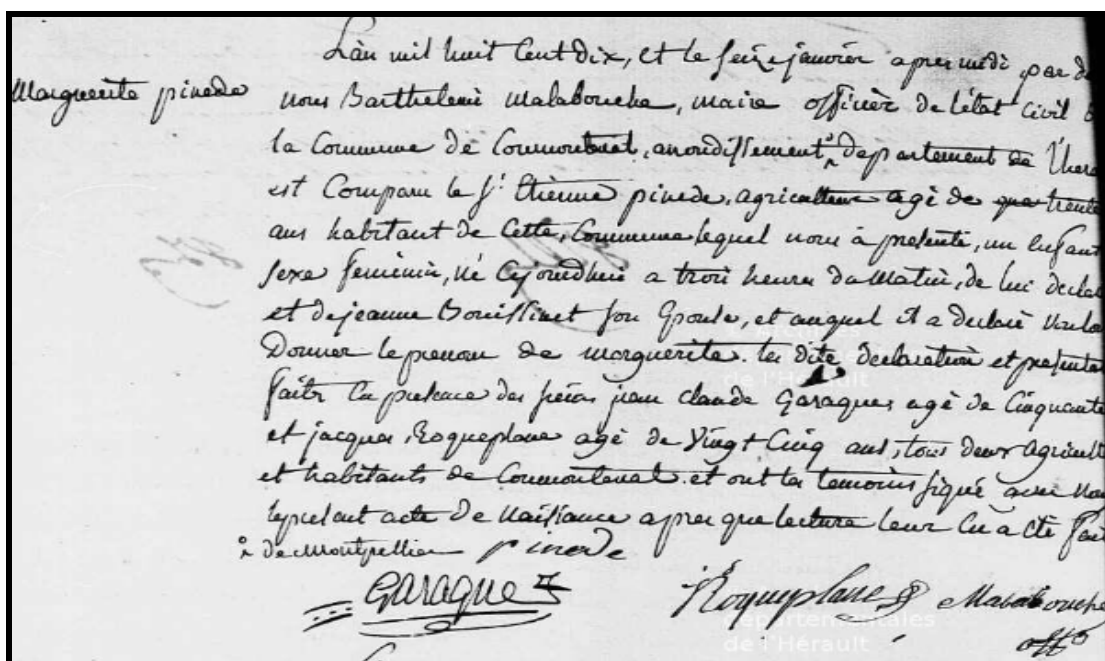 L'an mil huit Cent dix, et le seize janvier apres midi, par de
Marguerite pinede
nous Barthelemi Malabouche, maire officier de l'état Civil
la Commune de Cournonteral, arrondissement, departement de l'hera
est Comparu le Sr. Etienne pinede, agriculteur agé de trente
ans habitant de Cette Commune lequel nous à presenté, un enfant
sexe feminin, né Cejourdhui a trois heures du Matin, de lui declar
et de jeanne Bouissinet son Epouse, et auquel il a declaré voulo
Donner le prenom de marguerite. les dite declaration et presentat
faite En presence des jean Claude Garagues agé de Cinquante
et jacques Roqueplane agé de Vingt Cinq ans, tous deux Agricult
et habitants de Cournonteral. et ont les temoins signé avec nou
le present acte De Naissance apres que lecture leur En a été fait
de Montpellier pinede
Garague Roqueplane Malabouche
off
départementales
de l'Hérault